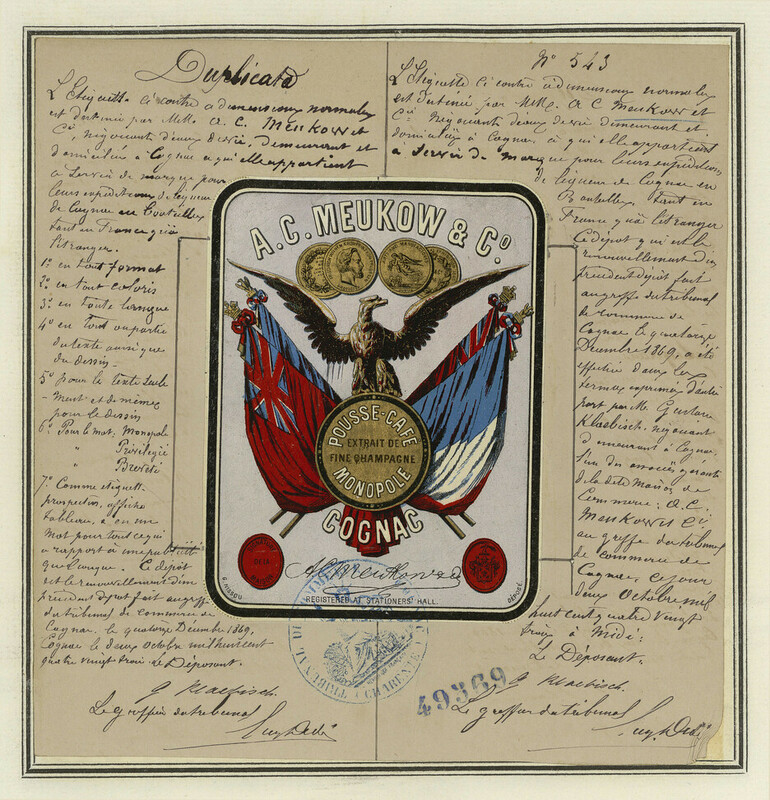 Duplicata
L'Etiquette ci contre a dimensions normales
est destinée par MM. A. C. Meukow et
Cie, négociants d'eaux de vie, demeurant et
domiciliés a Cognac a qui elle appartient
à servir de marque pour
leurs expéditions de liqueur
de Cognac en Bouteilles
tant en France qu'à
l'étranger.
1º en tout format
2º en tout coloris
3º en toute langue
4º en tout ou partie
du texte ainsi que
du dessin.
5º pour le texte seule
ment et de même
pour le dessin
6º Pour les mots: Monopole
" Privilégié
" Breveté
7º Comme etiquette
prospectus, affiche
tableau, & en un
mot pour tout ce qui
a rapport à une publicité
quelconque. Ce dépôt
est le renouvellement d'un
précédent dépôt fait au greffe
du tribunal de Commerce de
Cognac, le quatorze Décembre 1869.
Cognac le deux octobre mil huit cent
quatre vingt trois le Déposant.
G Klaebisch.
Le greffier du tribunal
A.C. MEUKOW & Cº
POUSSE-CAFÉ
EXTRAIT DE
FINE CHAMPAGNE
MONOPOLE
COGNAC
A.C. Meukow & Co
REGISTERED AT STATIONERS' HALL.
DÉPOSÉ
TRIBUNAL DE COMMERCE
CHARENTE
49369
Nº 543
L'Etiquette ci contre à dimensions normales
est destinée par MM. A C Meukow et
Cie Négociants d'eaux de vie demeurant et
domiciliés à Cognac, à qui elle appartient
a servir de marque pour leurs expéditions
de liqueur de Cognac en
Bouteilles tant en
France qu'à l'étranger
Ce dépôt qui est le
renouvellement d'un
précédent dépôt fait
au greffe du tribunal
de commerce de
Cognac le quatorze
Décembre 1869, a été
effectué dans les
termes exprimés d'autre
part par M. Gustave
Klaebisch, négociant
demeurant à Cognac
l'un des associés gérants
de la dite Maison de
Commerce: A. C.
Meukow & Cie
au greffe du tribunal
de commerce de
Cognac, ce jour
deux Octobre mil
huit cent quatre vingt
trois à Midi:
Le Déposant.
G Klaebisch.
Le greffier du tribunal